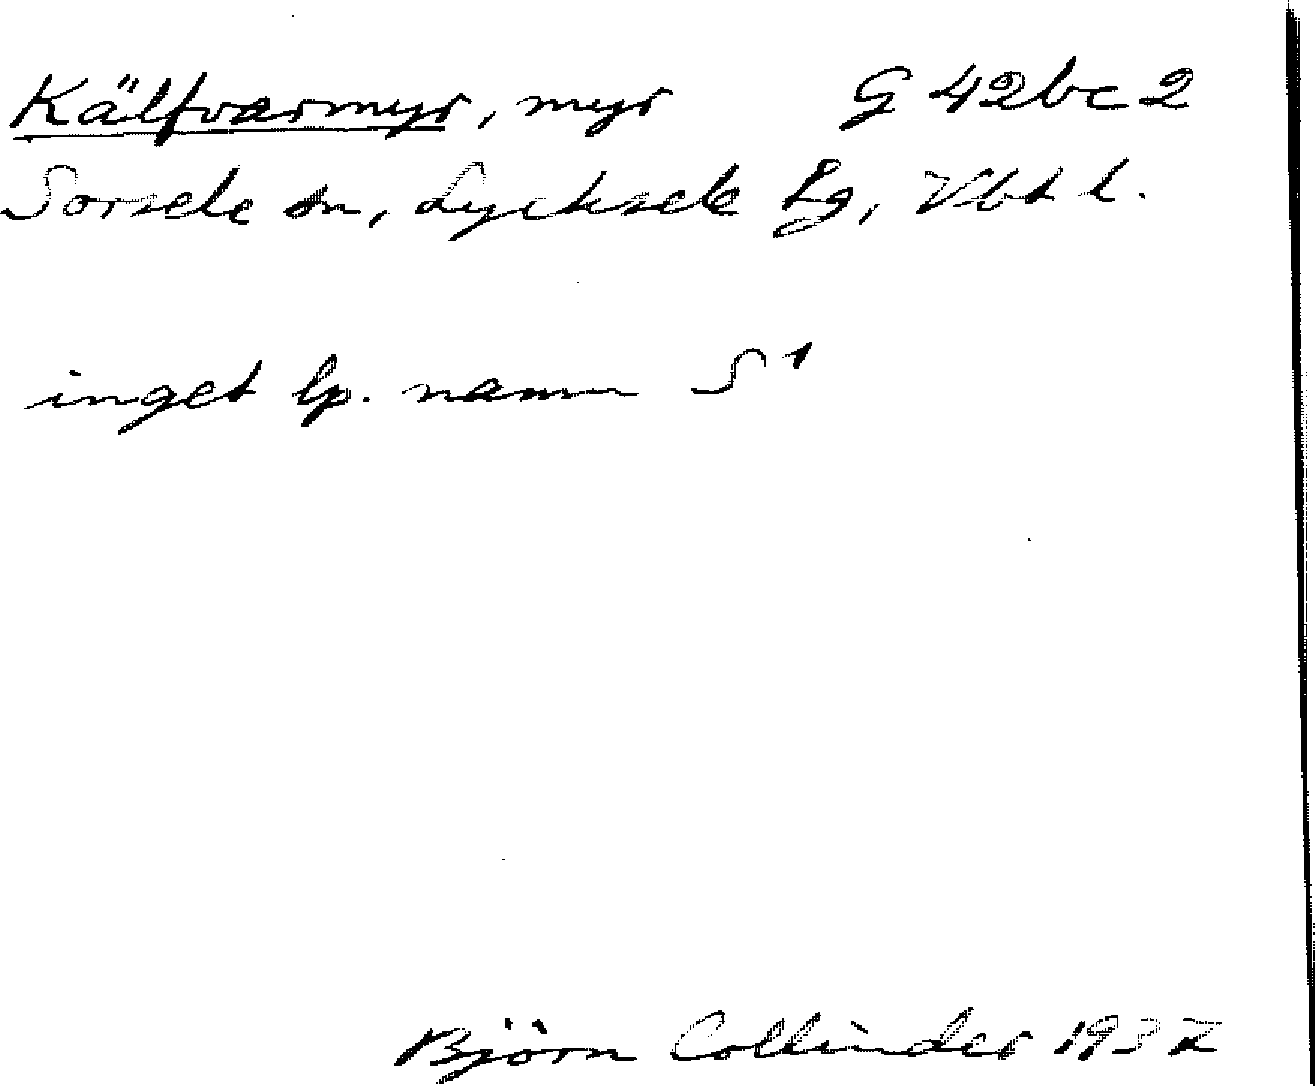 Kälfvarmyr, myr G 42bc2
Sorsele sn, Lycksele Lg, Vbt l.
inget lp. namn S¹
Björn Collinder 1937